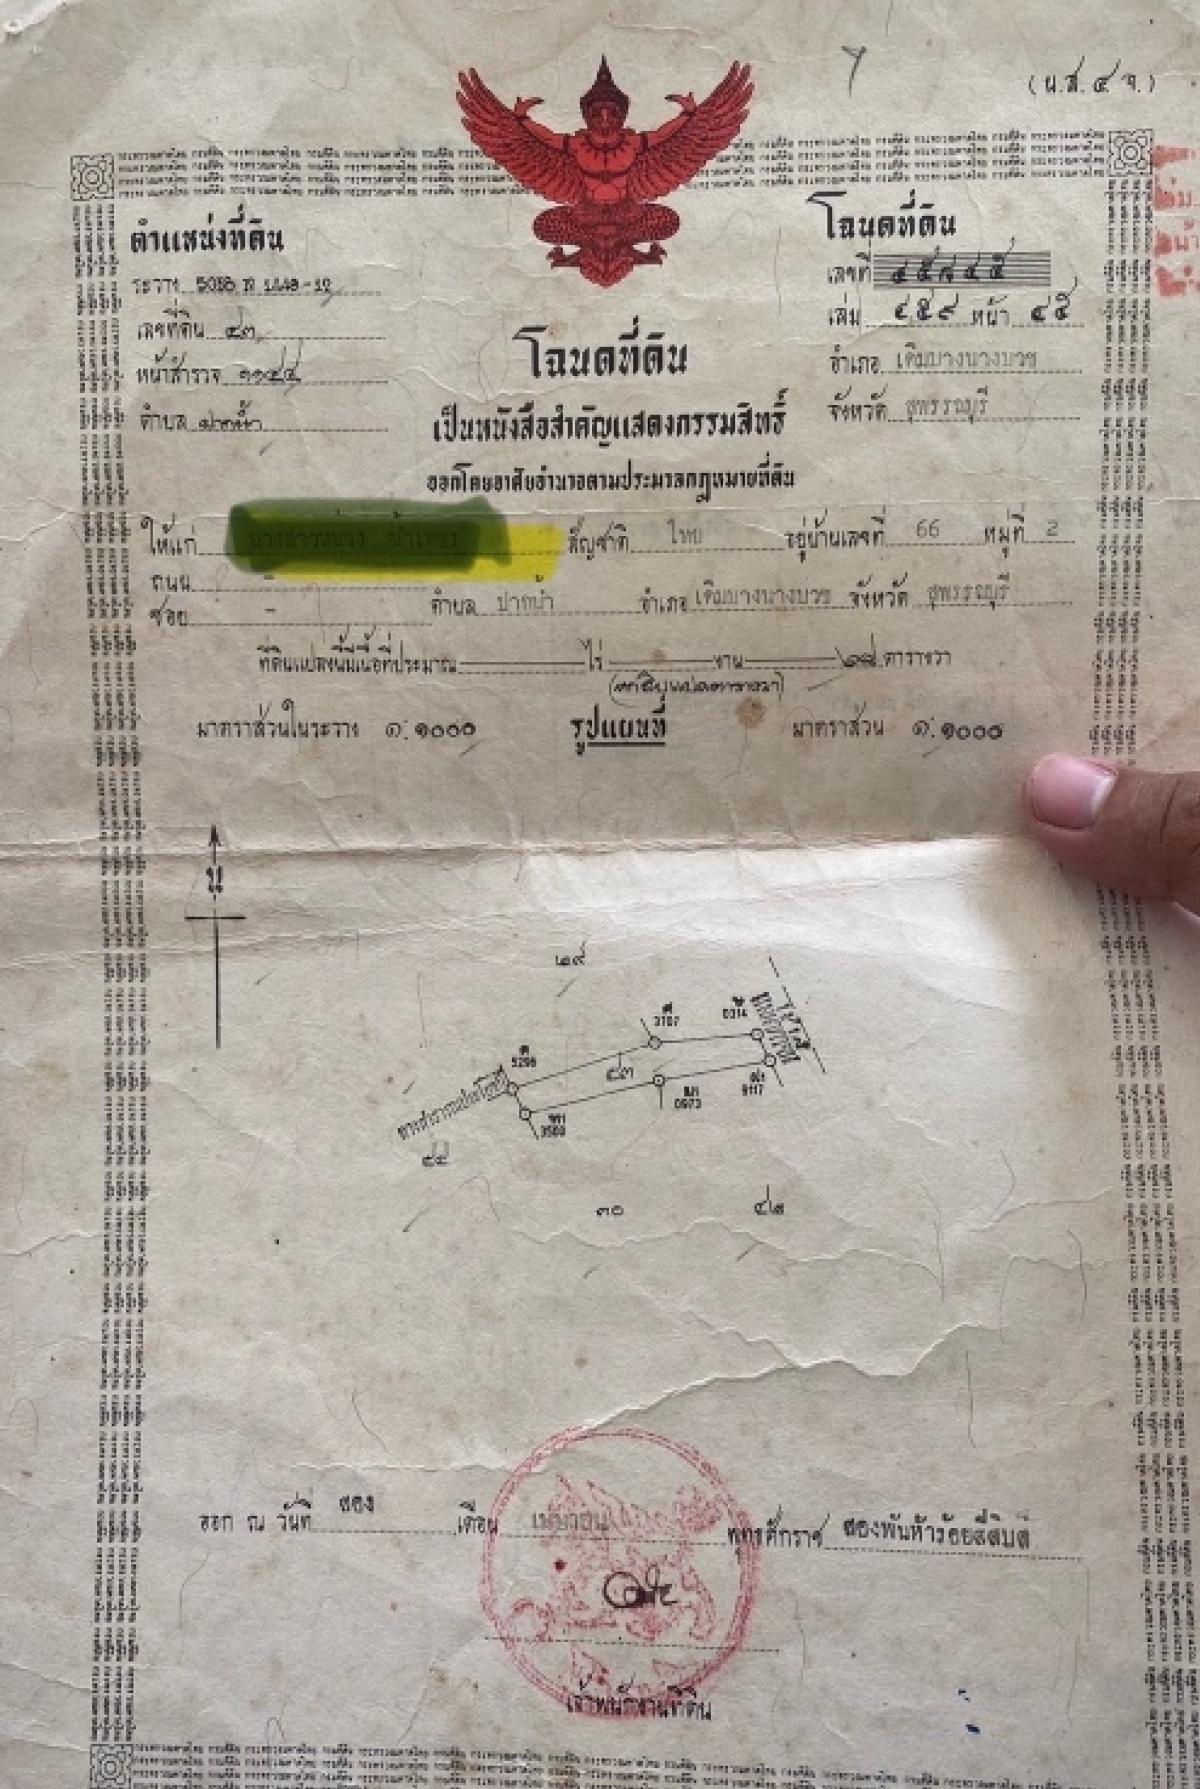 (น.ส.๔ จ.)
ตำแหน่งที่ดิน
ระวาง
เลขที่ดิน ๔๓
หน้าสำรวจ ๑๑๔๔
ตำบล ปากน้ำ
โฉนดที่ดิน
เลขที่ ๔๕๙๔๕
เล่ม ๔๕๙ หน้า ๔๕
อำเภอ เดิมบางนางบวช
จังหวัด สุพรรณบุรี
โฉนดที่ดิน
เป็นหนังสือสำคัญแสดงกรรมสิทธิ์
ออกโดยอาศัยอำนาจตามประมวลกฎหมายที่ดิน
ให้แก่ สัญชาติ ไทย อยู่บ้านเลขที่ 66 หมู่ที่ 2
ถนน -
ซอย - ตำบล ปากน้ำ อำเภอ เดิมบางนางบวช จังหวัด สุพรรณบุรี
ที่ดินแปลงนี้มีเนื้อที่ประมาณ ไร่ งาน ตารางวา
มาตราส่วนในระวาง ๑:๑๐๐๐ รูปแผนที่ มาตราส่วน ๑:๑๐๐๐
น
๒๙
3107
0314
5298
๔๓
0973
9117
3500
ทางสาธารณประโยชน์
๔๔
๓๐ ๔๒
ออก ณ วันที่ สอง เดือน เมษายน พุทธศักราช สองพันห้าร้อยสี่สิบสี่
เจ้าพนักงานที่ดิน